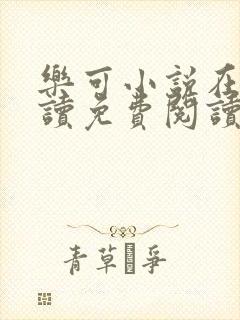 樂可小說在
讀免費閱讀
青草爭